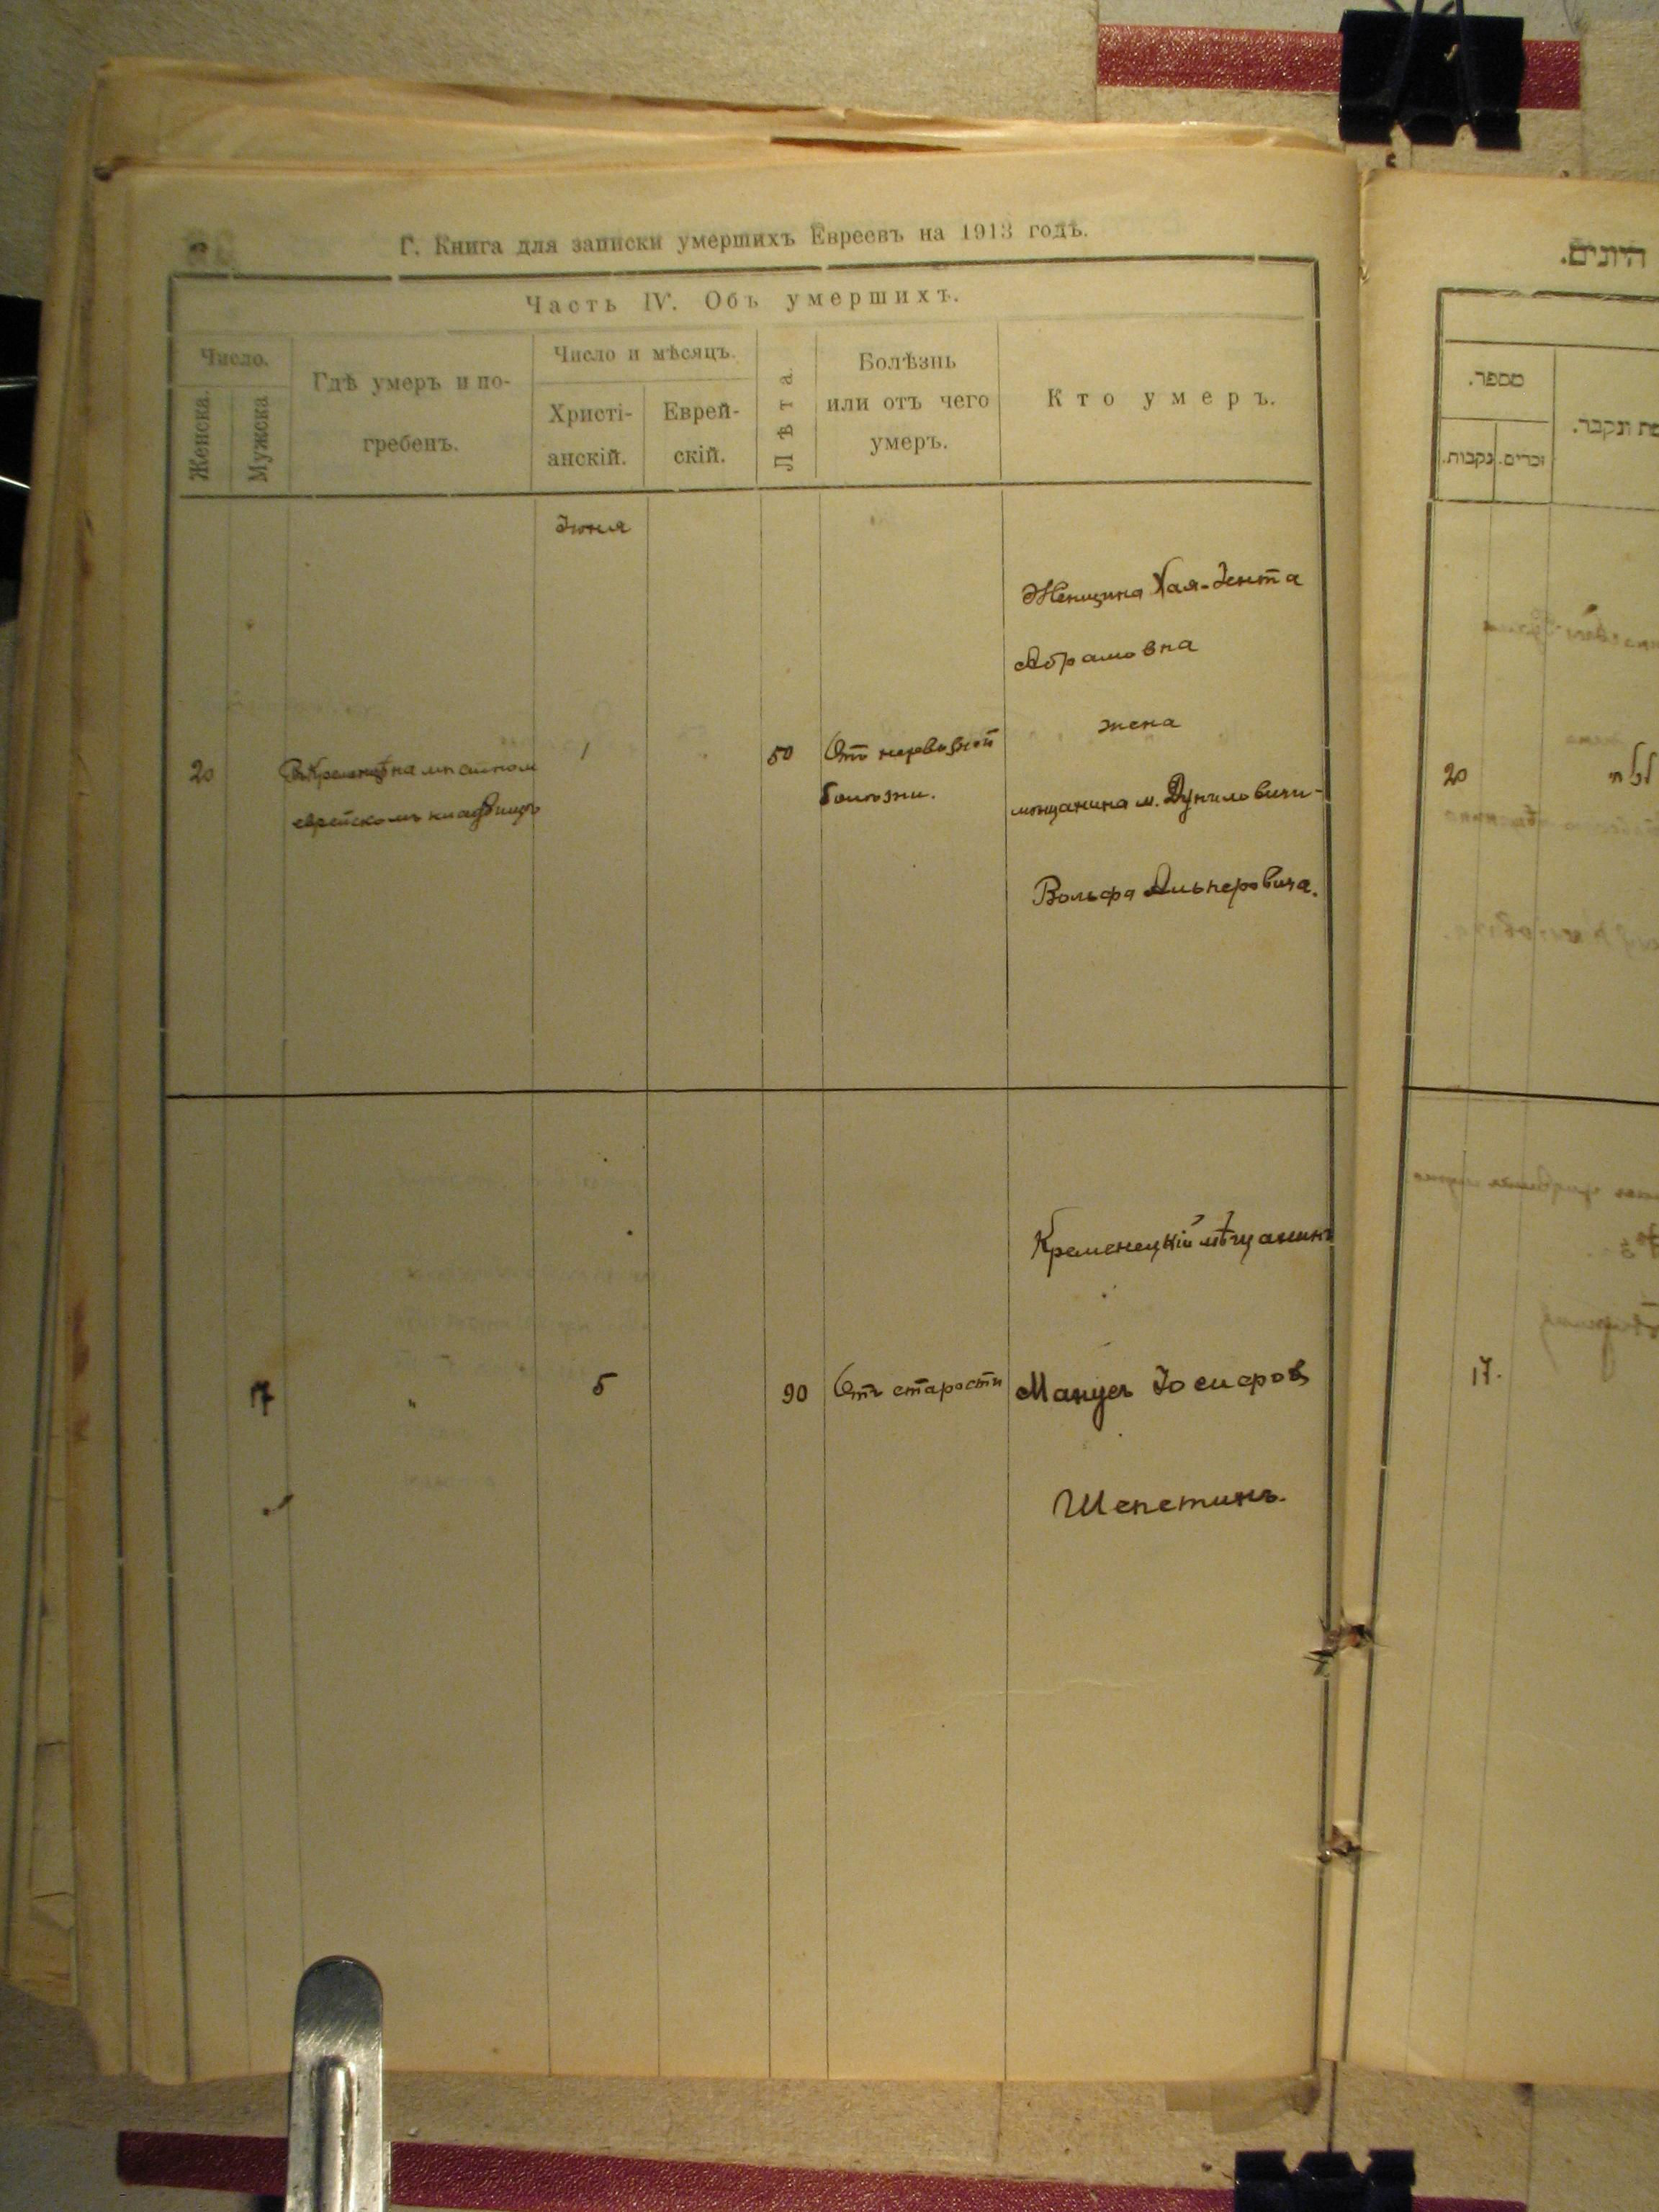 Г. Книга для записки умершихъ Евреевъ на 1913 годъ.
Часть IV. Объ умершихъ.
Число.
Женска.
Мужска
Гдѣ умеръ и по-
гребенъ.
Число и мѣсяцъ.
Христі-
анскій.
Еврей-
скій.
Лѣта.
Болѣзнь
или отъ чего
умеръ.
Кто умеръ.
Іюня
20
Въ Кременцѣ на мѣстном
еврейскомъ кладбищѣ
1
50
От нервозной
болѣзни.
Женщина Хая-Іента
Абрамовна
жена
мѣщанина м. Дуниловичи-
Вольфа Альперовича.
17
"
5
90
Отъ старости
Кременецкій мѣщанинъ
Манусъ Іосифов
Шепетинъ.
היונים.
מספר.
נקבות.
זכרים.
ונקבר.
20
17.